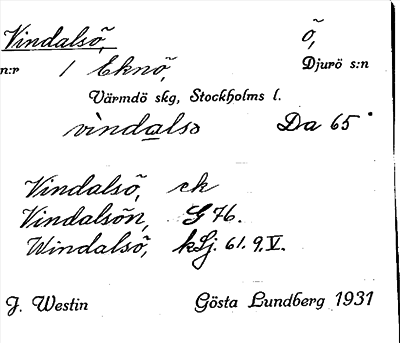 Vindalsö, ö,
n:r 1 Eknö, Djurö s:n
Värmdö skg, Stockholms l.
vìndalsɔ Da 65°
Vindalsö, ek
Vindalsön, G 76.
Windalsö, kLj. 61. 9. V.
J. Westin Gösta Lundberg 1931